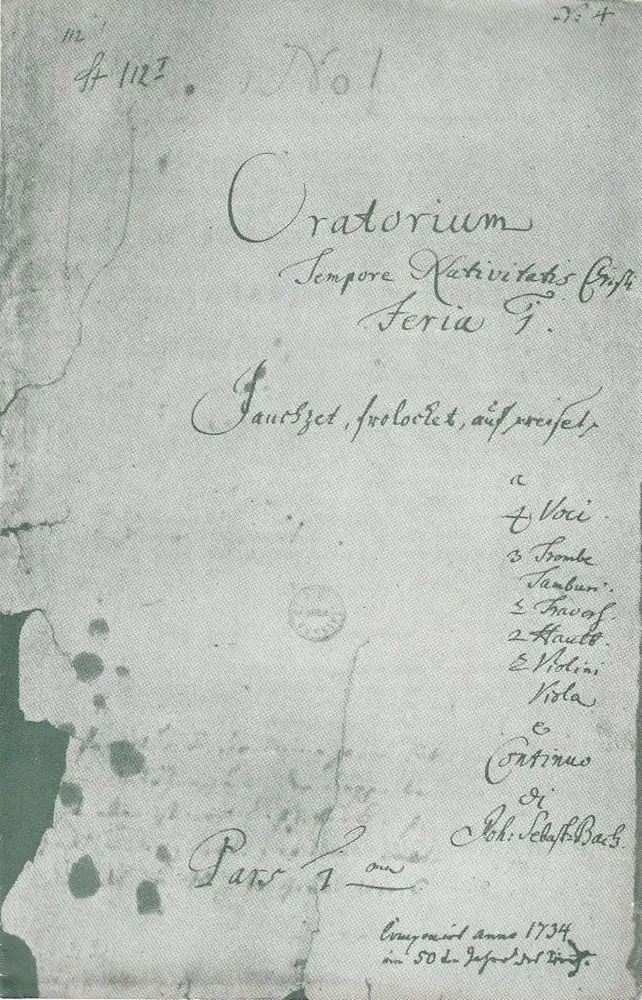 No 4
112
St 112 I
No 1
Oratorium
Tempore Nativitatis Christi
Feria 1.
Jauchzet, frolocket, auf preiset,
a
4 Voci.
3 Trombe
Tamburi.
2 Travers.
2 Hautb.
2 Violini
Viola
e
Continuo
di
Joh: Sebast: Bach
Pars 1 ma
Componirt anno 1734
im 50. Jahre des